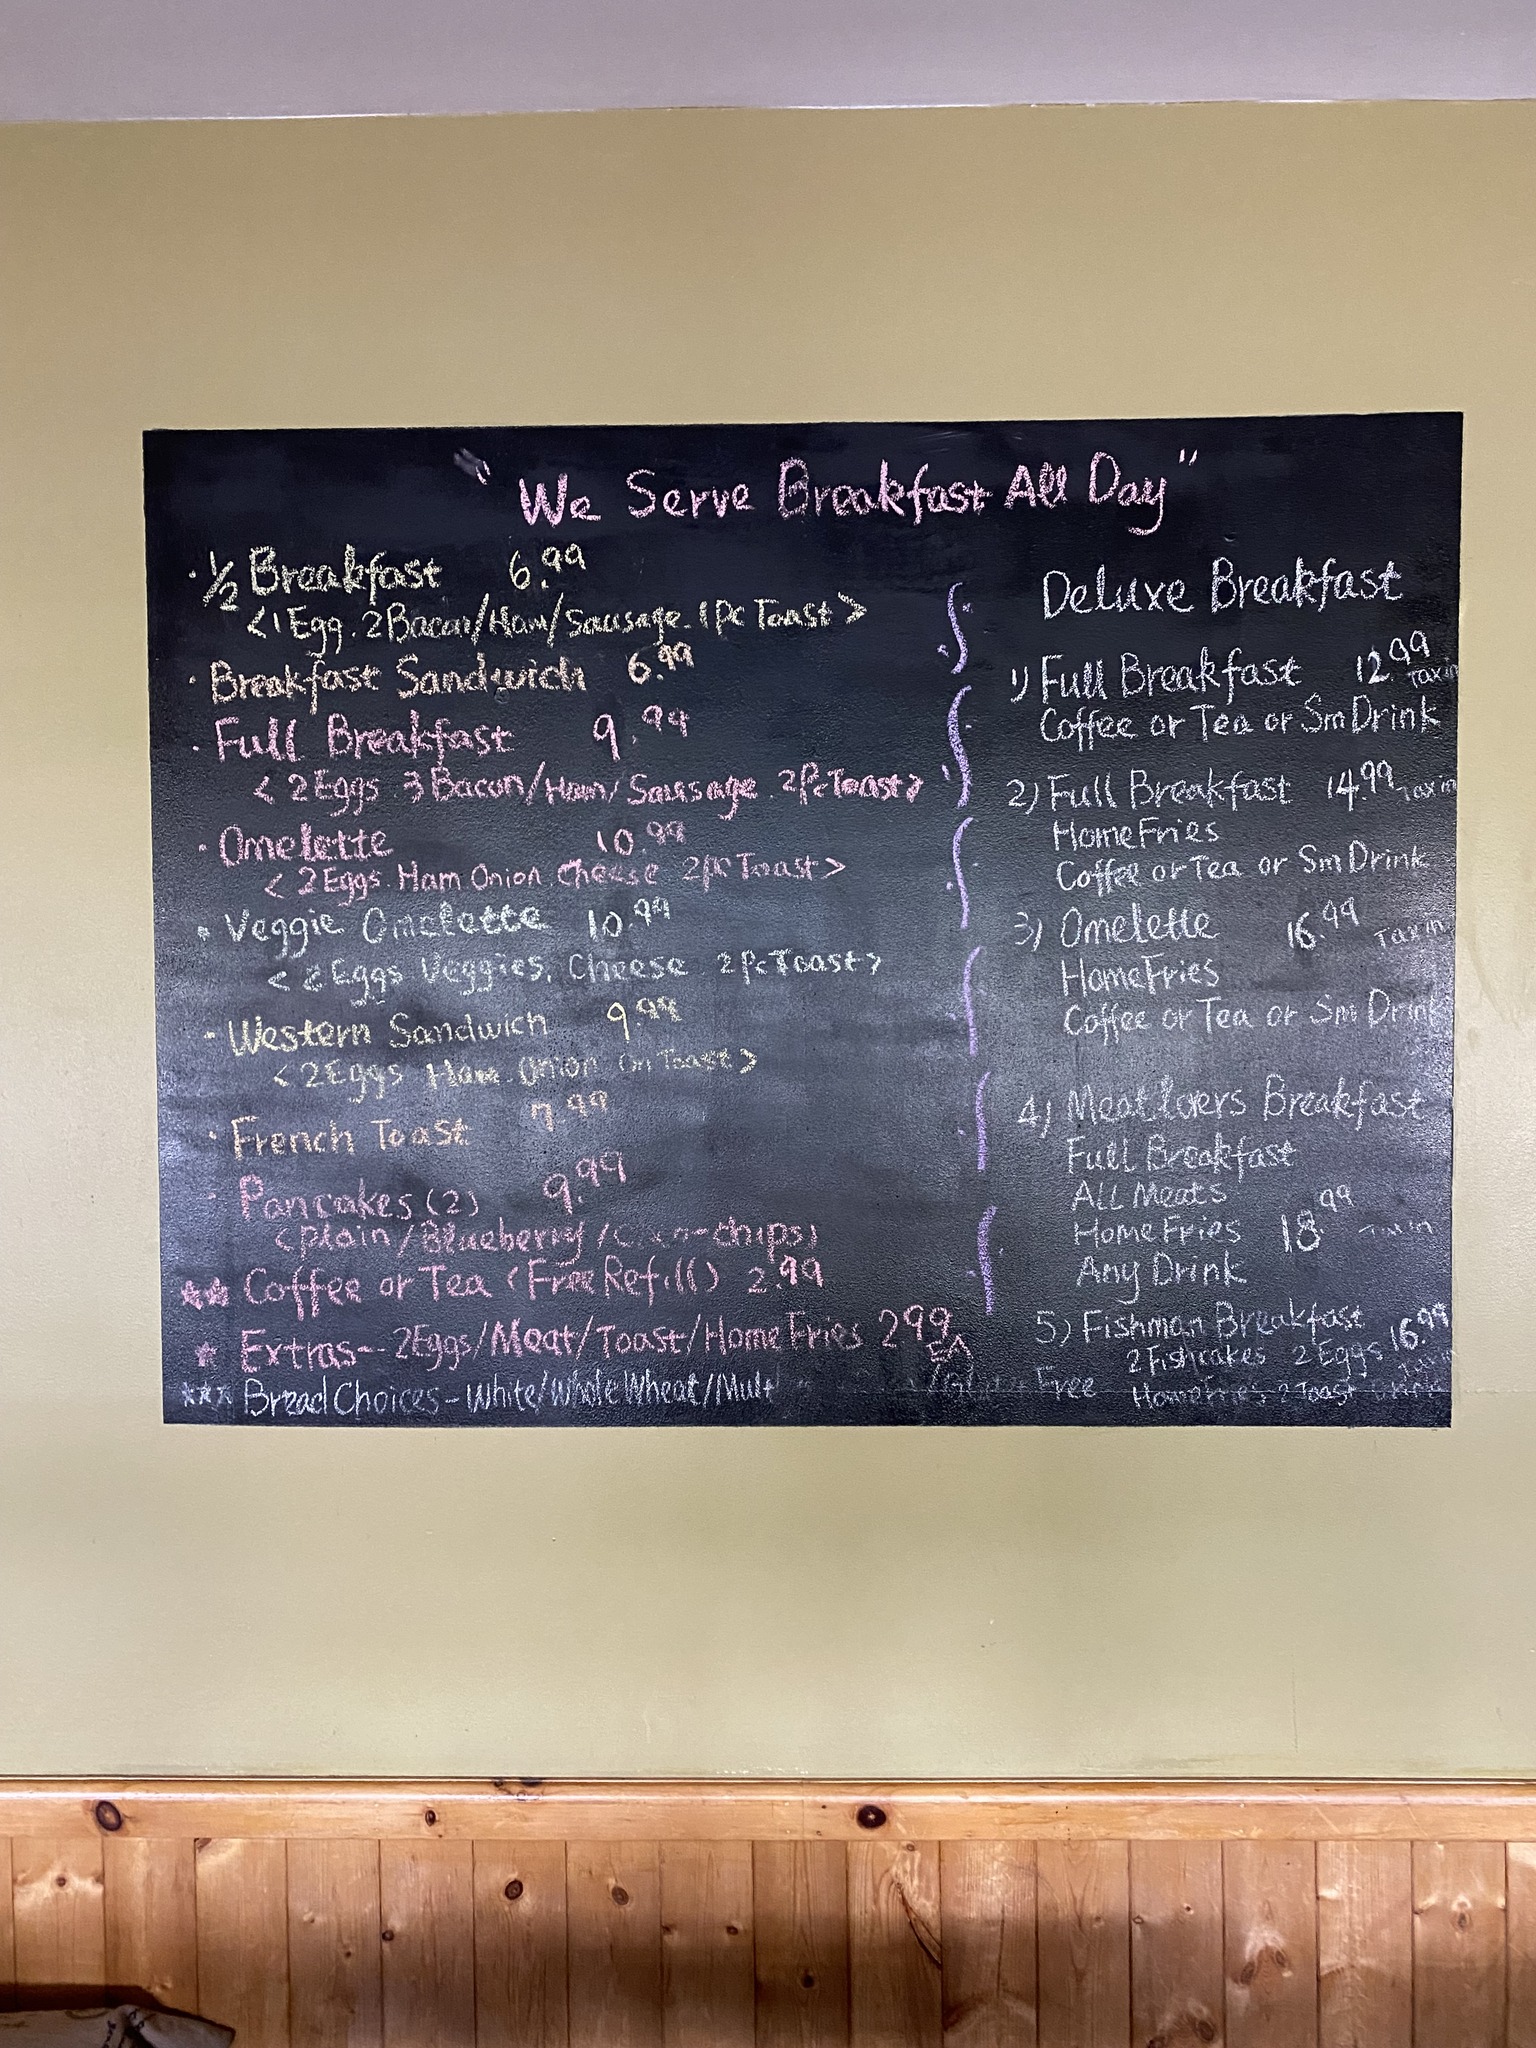 "We Serve Breakfast All Day"
· 1/2 Breakfast 6.99
<1 Egg. 2 Bacon/Ham/Sausage. 1pc Toast>
· Breakfast Sandwich 6.99
· Full Breakfast 9.99
<2 Eggs. 3 Bacon/Ham/Sausage. 2Pc Toast>
· Omelette 10.99
<2 Eggs. Ham. Onion. Cheese 2pc Toast>
· Veggie Omelette 10.99
<2 Eggs Veggies, Cheese 2Pc Toast>
· Western Sandwich 9.99
<2 Eggs Ham. Onion on Toast>
· French Toast 7.99
· Pancakes (2) 9.99
(Plain/Blueberry/ -chips)
★★ Coffee or Tea (Free Refill) 2.99
★ Extras-- 2Eggs/Meat/Toast/HomeFries 2.99 EA
★★★ Bread Choices - White/Whole Wheat/ Free
Deluxe Breakfast
1) Full Breakfast 12.99 Taxin
Coffee or Tea or Sm Drink
2) Full Breakfast 14.99 Taxin
HomeFries
Coffee or Tea or Sm Drink
3) Omelette 16.99 Taxin
HomeFries
Coffee or Tea or Sm Drink
4) Meat lovers Breakfast
Full Breakfast
All Meats
HomeFries 18.99 Taxin
Any Drink
5) Fishman Breakfast 16.99
2 Fishcakes 2 Eggs Taxin
HomeFries 2 Toast